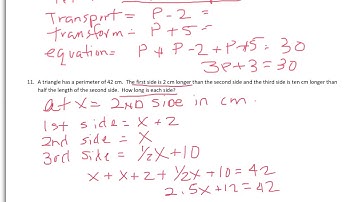 Transport = P - 2 =
transform = P + 5 =
equation = P + P - 2 + P + 5 = 30
3P + 3 = 30
11. A triangle has a perimeter of 42 cm. The first side is 2 cm longer than the second side and the third side is ten cm longer than
half the length of the second side. How long is each side?
let x = 2ND side in cm.
1st side = x + 2
2nd side = x
3rd side = 1/2x + 10
x + x + 2 + 1/2x + 10 = 42
2.5x + 12 = 42